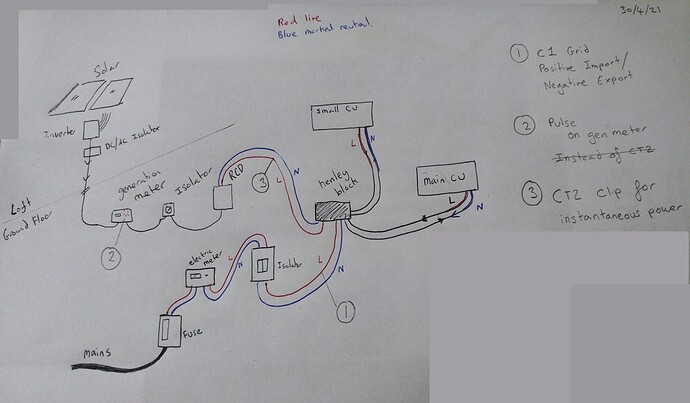 30/4/21
Red live
Blue marked neutral.
1 C1 Grid
Positive Import/
Negative Export
2 Pulse
on gen meter
Instead of CT2
3 CT2 Clip for
instantaneous power
Solar
Inverter
DC/AC Isolator
Loft
Ground Floor
generation
meter
Isolator
RCD
2
3
L
N
Small CU
L
N
henley
block
Main CU
L
N
electric
meter
L
N
Isolator
L
N
1
Fuse
Mains